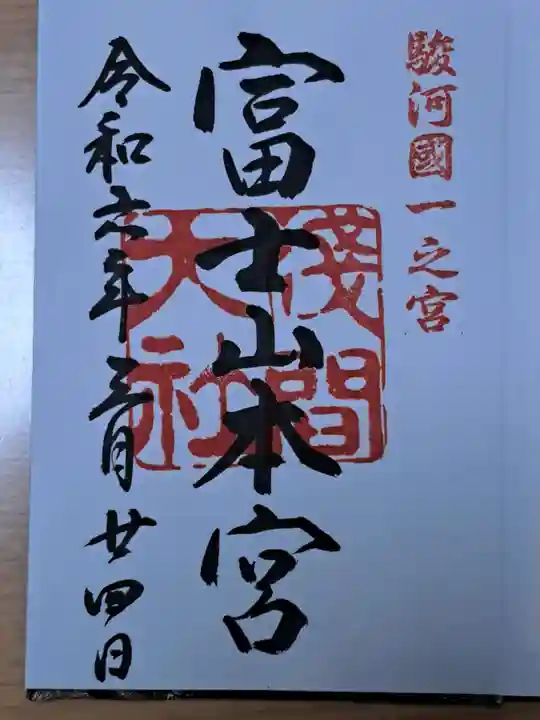 駿河國一之宮
富士山本宮
淺間
大社
令和六年三月廿四日